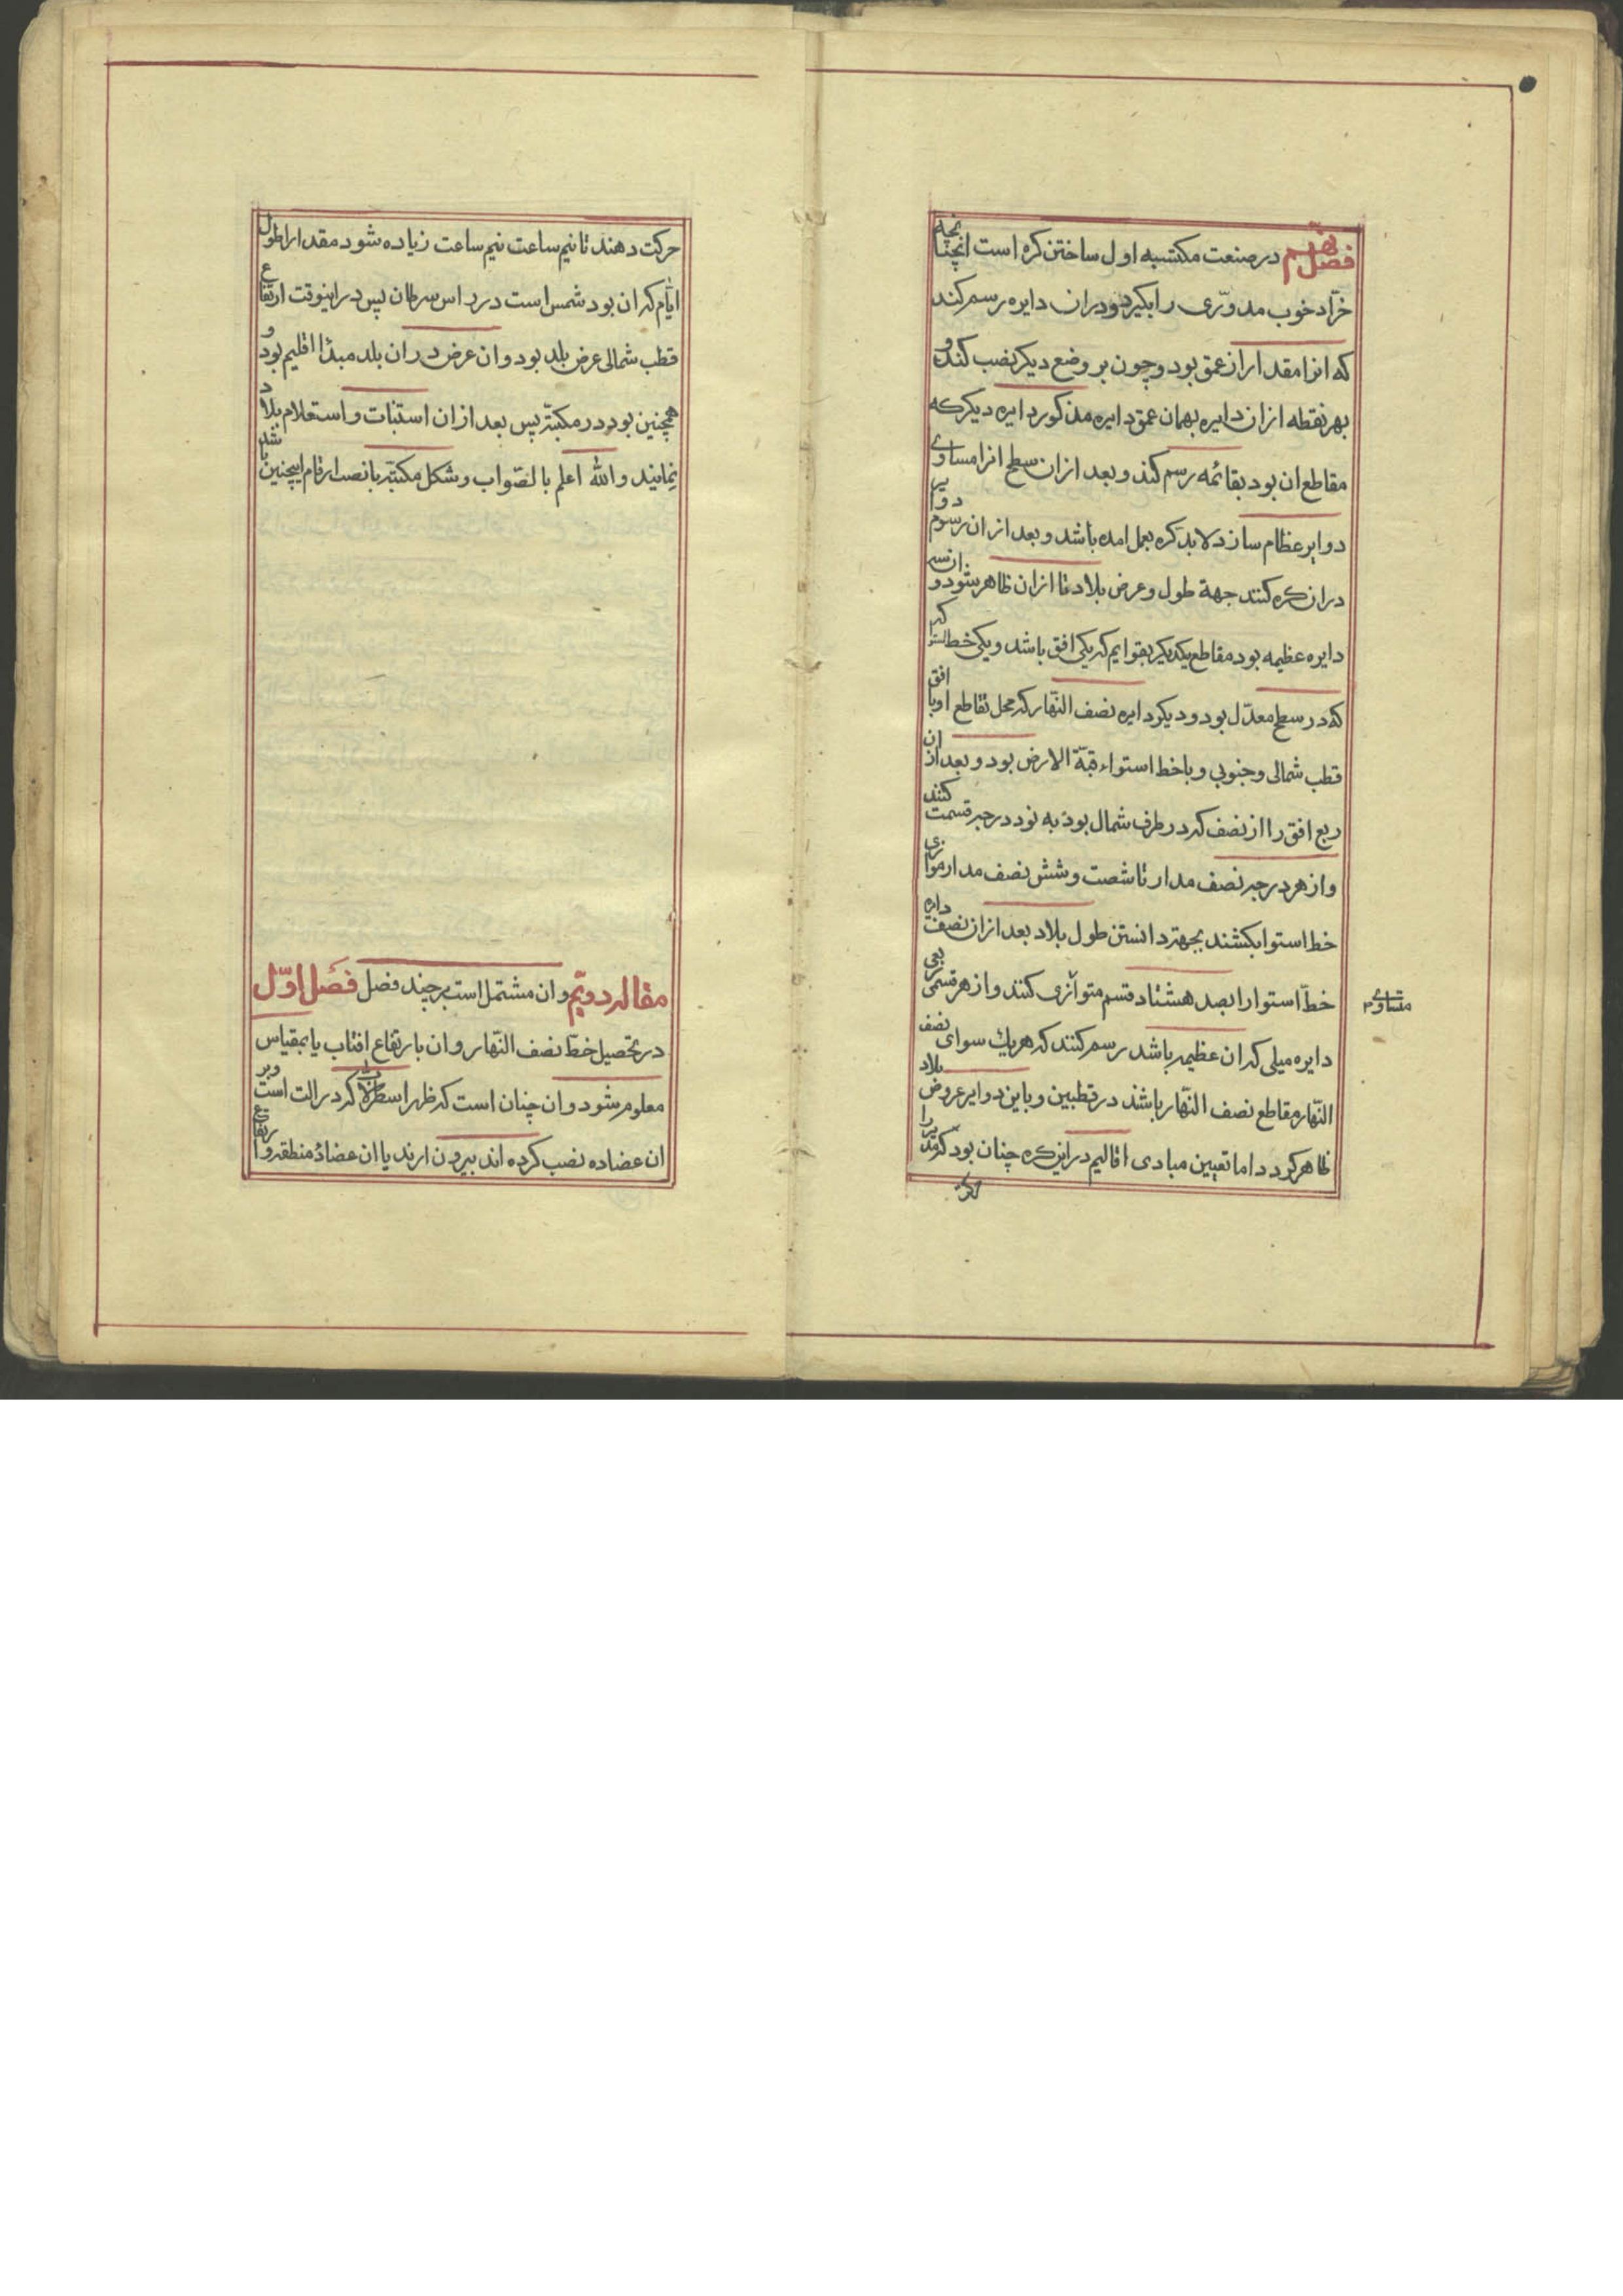 فصل نهم در صنعت مکتسبه اول ساختن کره است انچنانچه
خرّاد خوب مدوّری را بکیرد ودران دایره رسم کند
که انرا مقدار از عمق بود وچون بر وضع دیکر نصب کند و
بهر نقطه ازان دایره بهمان عمق دایره مذکور دایره دیکر که
مقاطع ان بود بقائمه رسم کند و بعد ازان سطح انرا مساوے
دوایر عظام سازد لابد کره بعمل امده باشد و بعد ازان رسوم دوایر
دران کره کنند جهة طول وعرض بلاد تا ازان ظاهر شود و ان سه
دایره عظیمه بود مقاطع یکدیکر بقوایم که یکی افق باشد و یکی خط استوا که
که در سطح معدّل بود و دیکر دایره نصف النّهار که محل تقاطع او با افق
قطب شمالی وجنوبی و با خط استواء قبّة الارض بود و بعد از ان
ربع افق را از نصف که در طرف شمال بود به نود درجه قسمت کنند
و از هر درجه نصف مدار تا شصت و شش نصف مدار موازی
خط استوا بکشند بجهة دانستن طول بلاد بعد ازان نصف دایره
خطّ استوا را بصد هشتاد قسم متوازی کنند و از هر قسمی ربعی
متساوے
دایره میلی که ان عظیمه باشد رسم کنند که هریك سوای نصف
النّهار مقاطع نصف النّهار باشند در قطبین و باین دوایر عروض بلاد
ظاهر کردد اما تعیین مبادی اقالیم در این کره چنان بود که مدیر را
حرکت دهند تا نیم ساعت نیم ساعت زیاده شود مقدار اطول
ایّام که ان بود شمس است در راس سرطان پس در اینوقت ارتفاع
قطب شمالی عرض بلد بود وان عرض دران بلد مبدٔا اقلیم بود و
همچنین بود در مکبّه پس بعد ازان استنبات و استعلام بلاد
نمایند و الله اعلم بالصّواب وشکل مکبّه با نصب ارقام اینچنین باشد
مقاله دویّم وان مشتمل است بر چند فصل فصل اوّل
در تحصیل خطّ نصف النّهار وان بارتفاع افتاب یا بمقیاس
معلوم شود وان چنان است که ظهر اسطرلاب که در الت است وبر
ان عضاده نصب کرده اند بیرون ارند یا ان عضادهٔ منطقه و ارتفاع